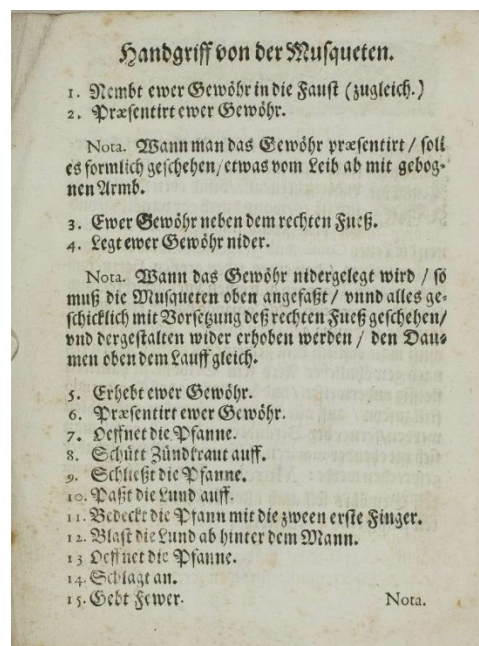 Handgriff von der Musqueten.
1. Nembt ewer Gewöhr in die Faust (zugleich.)
2. Præsentirt ewer Gewöhr.
Nota. Wann man das Gewöhr præsentirt / soll
es formlich geschehen / etwas vom Leib ab mit gebog-
nen Armb.
3. Ewer Gewöhr neben dem rechten Fueß.
4. Legt ewer Gewöhr nider.
Nota. Wann das Gewöhr nidergelegt wird / so
muß die Musqueten oben angefaßt / vnnd alles ge-
schicklich mit Vorsetzung deß rechten Fueß geschehen /
vnd dergestalten wider erhoben werden / den Dau-
men oben dem Lauff gleich.
5. Erhebt ewer Gewöhr.
6. Præsentirt ewer Gewöhr.
7. Oeffnet die Pfanne.
8. Schütt Zündkraut auff.
9. Schließt die Pfanne.
10. Paßt die Lund auff.
11. Bedeckt die Pfann mit die zween erste Finger.
12. Blast die Lund ab hinter dem Mann.
13 Oeffnet die Pfanne.
14. Schlagt an.
15. Gebt Fewer.
Nota.